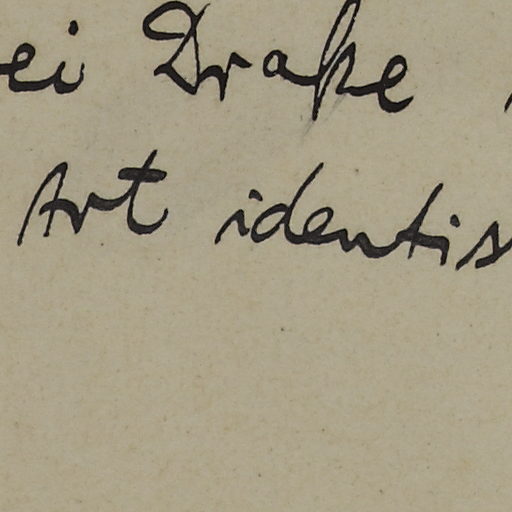 ei Drake
Art identis